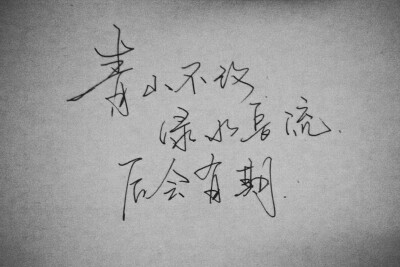 青山不改
绿水长流.
后会有期.